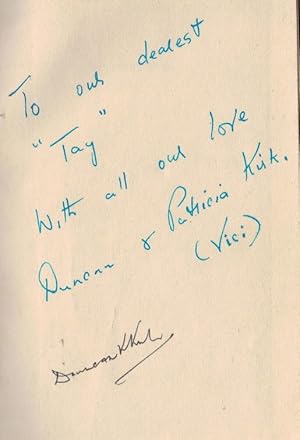 To our dearest
"Tay"
With all our love
Duncan & Patricia Kirk.
(Vici)
Duncan Kirk